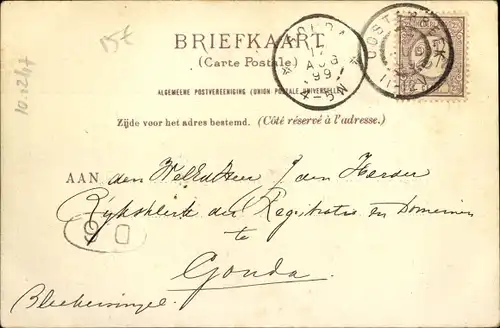 15€
BRIEFKAART
(Carte Postale)
ALGEMEENE POSTVEREENIGING (UNION POSTALE UNIVERSELLE)
Zijde voor het adres bestemd. (Côté réservé à l'adresse.)
GOUDA
17
AUG
99
OOSTERBEEK
AAN den WelEdHeer J den Harder
Rijksklerk der Registratie en Domeinen
te
Gouda.
Bleekersingel.
10.2247